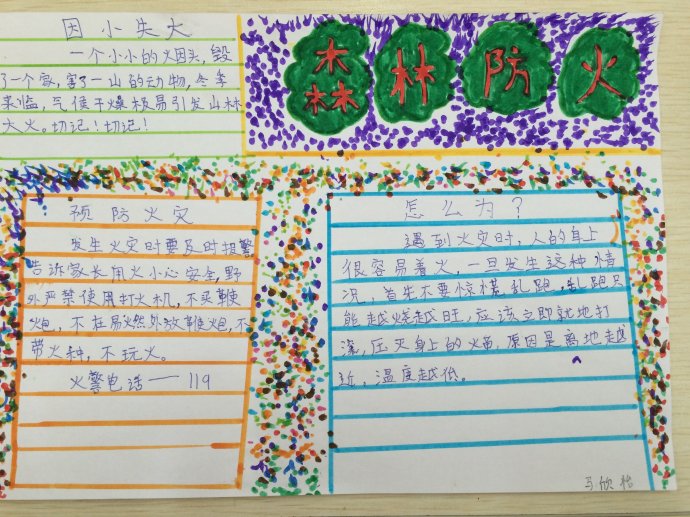 因小失大
一个小小的火因头,毁
了一个家,害了一山的动物,冬季
来临,气候干燥极易引发山林
大火。切记!切记!
森林防火
预防火灾
发生火灾时要及时报警
告诉家长用火小心安全,野
外严禁使用打火机,不买鞭
炮,不在易燃处放鞭炮,不
带火种,不玩火。
火警电话——119
怎么为?
遇到火灾时,人的身上
很容易着火,一旦发生这种情
况,首先不要惊慌乱跑,乱跑只
能越烧越旺,应该立即就地打
滚,压灭身上的火焰,原因是离地越
近,温度越低。
马欣怡